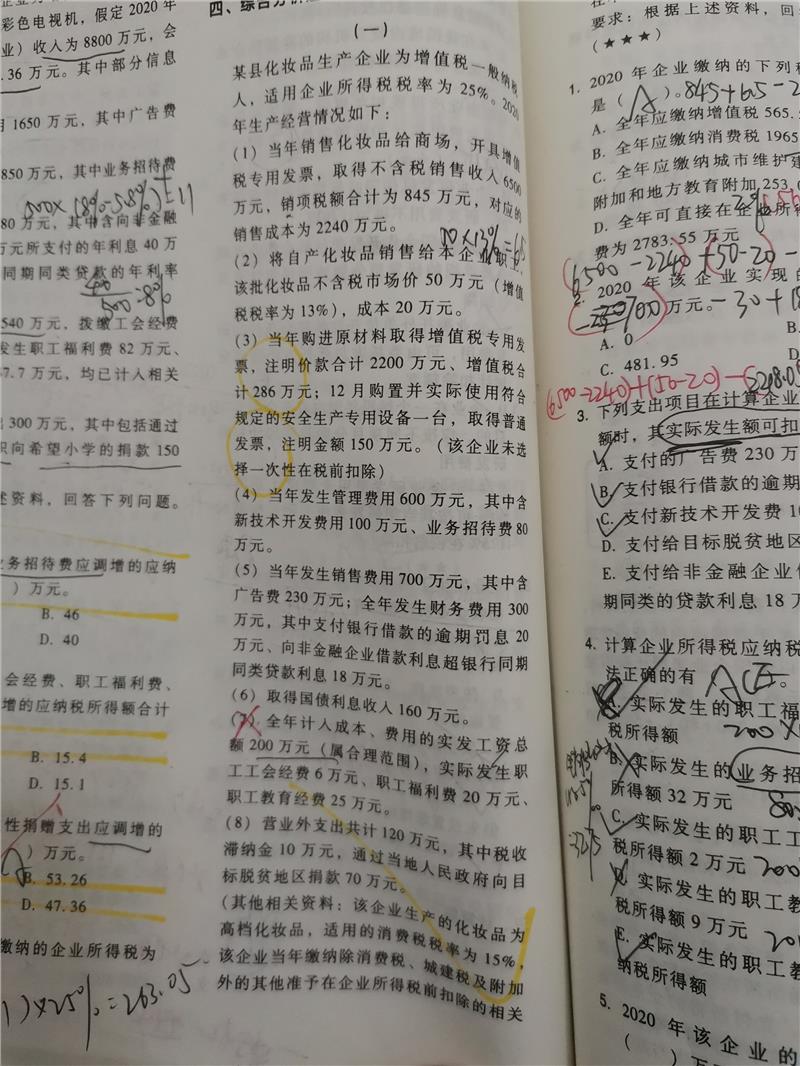 彩色电视机，假定 2020 年
业）收入为 8800 万元，会
.36 万元。其中部分信息
1650 万元，其中广告费
850 万元，其中业务招待费
500×(8%-5.8%)=11
80 万元，其中含向非金融
万元所支付的年利息 40 万
同期同类贷款的年利率
40/500=8%
540 万元，拨缴工会经费
发生职工福利费 82 万元、
7.7 万元，均已计入相关
300 万元，其中包括通过
向希望小学的捐款 150
述资料，回答下列问题。
业务招待费应调增的应纳
）万元。
B. 46
D. 40
会经费、职工福利费、
增的应纳税所得额合计
B. 15.4
D. 15.1
性捐赠支出应调增的
）万元。
B. 53.26
D. 47.36
缴纳的企业所得税为
)×25%=263.05
四、综合分析
（一）
某县化妆品生产企业为增值税一般纳税
人，适用企业所得税税率为 25%。2020
年生产经营情况如下：
（1）当年销售化妆品给商场，开具增值
税专用发票，取得不含税销售收入 6500
万元，销项税额合计为 845 万元，对应的
销售成本为 2240 万元。
（2）将自产化妆品销售给本企业职工，
该批化妆品不含税市场价 50 万元（增值
税税率为 13%），成本 20 万元。
（3）当年购进原材料取得增值税专用发
票，注明价款合计 2200 万元、增值税合
计 286 万元；12 月购置并实际使用符合
规定的安全生产专用设备一台，取得普通
发票，注明金额 150 万元。（该企业未选
择一次性在税前扣除）
（4）当年发生管理费用 600 万元，其中含
新技术开发费用 100 万元、业务招待费 80
万元。
（5）当年发生销售费用 700 万元，其中含
广告费 230 万元；全年发生财务费用 300
万元，其中支付银行借款的逾期罚息 20
万元、向非金融企业借款利息超银行同期
同类贷款利息 18 万元。
（6）取得国债利息收入 160 万元。
（7）全年计入成本、费用的实发工资总
额 200 万元（属合理范围），实际发生职
工工会经费 6 万元、职工福利费 20 万元、
职工教育经费 25 万元。
（8）营业外支出共计 120 万元，其中税收
滞纳金 10 万元，通过当地人民政府向目
标脱贫地区捐款 70 万元。
（其他相关资料：该企业生产的化妆品为
高档化妆品，适用的消费税税率为 15%，
该企业当年缴纳除消费税、城建税及附加
外的其他准予在企业所得税前扣除的相关
要求：根据上述资料，回
（★★★）
1. 2020 年企业缴纳的下列税
是（ A ）。845+6.5-2
A. 全年应缴纳增值税 565.
B. 全年应缴纳消费税 1965
C. 全年应缴纳城市维护建
附加和地方教育附加 253.0
D. 全年可直接在企业所得
费为 2783.55 万元
(6500-2240)+(50-20)-
2. 2020 年该企业实现的
700 万元。-30+1
A. 0
B.
C. 481.95
D.
(6500-2240)+(50-20)-(
3. 下列支出项目在计算企业
额时，其实际发生额可扣
A. 支付的广告费 230 万
B. 支付银行借款的逾期
C. 支付新技术开发费 10
D. 支付给目标脱贫地区
E. 支付给非金融企业借
期同类的贷款利息 18 万
4. 计算企业所得税应纳税
法正确的有 ACE。
A. 实际发生的职工福
税所得额 200×
B. 实际发生的业务招
所得额 32 万元
C. 实际发生的职工工
税所得额 2 万元 200
D. 实际发生的职工教
税所得额 9 万元
E. 实际发生的职工教
纳税所得额
5. 2020 年该企业的
（ ）万